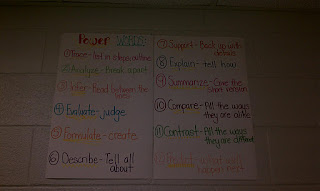 Power Words
① Trace - list in steps/outline
② Analyze - Break apart
③ Infer - Read between the lines
④ Evaluate - judge
⑤ Formulate - create
⑥ Describe - Tell all about
⑦ Support - Back up with details
⑧ Explain - tell how
⑨ Summarize - Give the short version
⑩ Compare - All the ways they are alike
⑪ Contrast - All the ways they are different
⑫ Predict - what will happen next